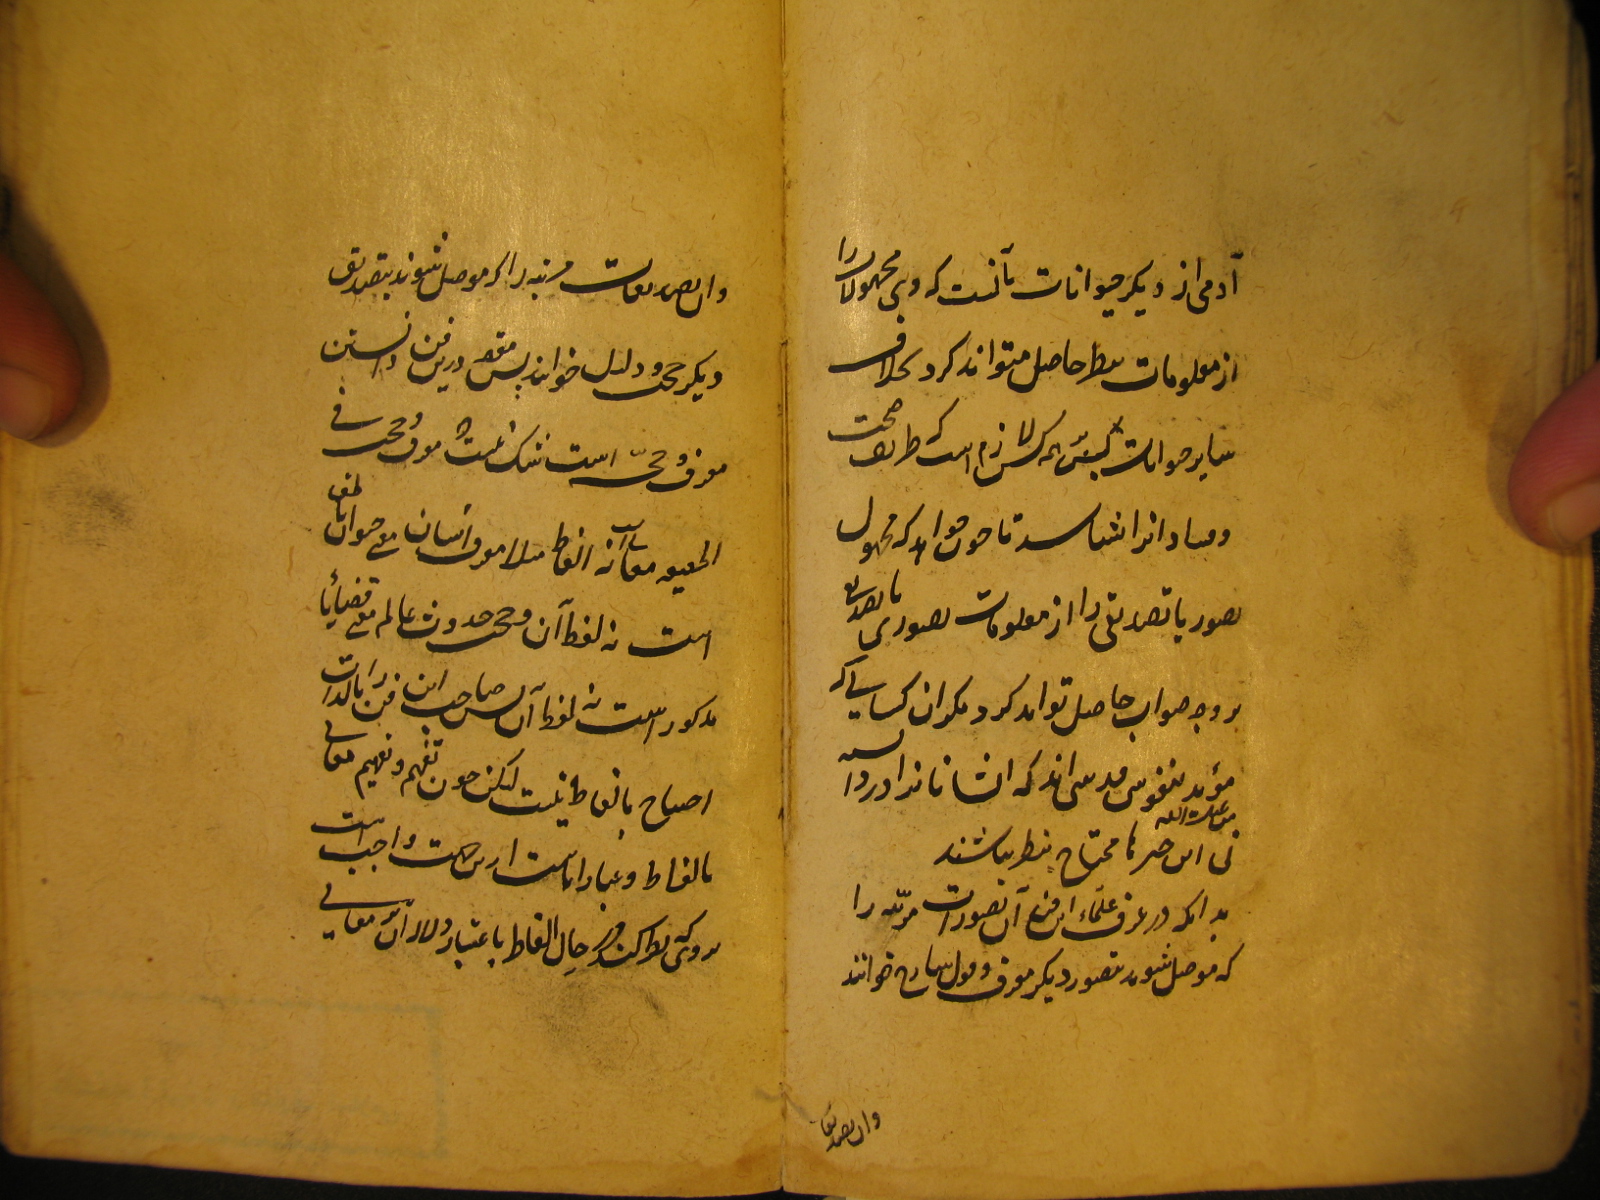 آدمی از دیگر حیوانات بآنست که وی مجهولات را
از معلومات بنظر حاصل میتواند کرد بخلاف
سایر حیوانات پس بر همه کس لازم است که طریق صحت
و فساد آنرا بشناسد تا چون خواهد که مجهول
تصوری یا تصدیقی را از معلومات تصوری یا تصدیقی
بر وجه صواب حاصل تواند کرد مگر آن کسانی که
مؤید بنفوس قدسی اند که ایشانرا در دانستن
چیزها محتاج بنظر نباشند
بدانکه در عرف علماء این فن آن تصورات مرتبه را
که موصل شوند بتصور دیگر معرف و قول شارح خوانند
وان تصدیقات
وان تصدیقات مرتبه را که موصل شوند بتصدیق
دیگر حجت و دلیل خوانند پس مقصود درین فن دانستن
معرف و حجت است و شک نیست که معرف و حجت فی
الحقیقه معانی اند نه الفاظ مثلا معرف انسان معنی حیوان ناطق
است نه لفظ آن و حجت حدوث عالم معنی قضایا
مذکور است نه لفظ آن پس صاحب این فن را بالذات
احتیاج بالفاظ نیست لیکن چون تفهم و تفهیم معانی
بالفاظ و عبارات است ازین جهت واجب است
بروی که نظر کند در حال الفاظ باعتبار دلالت آن بر معانی